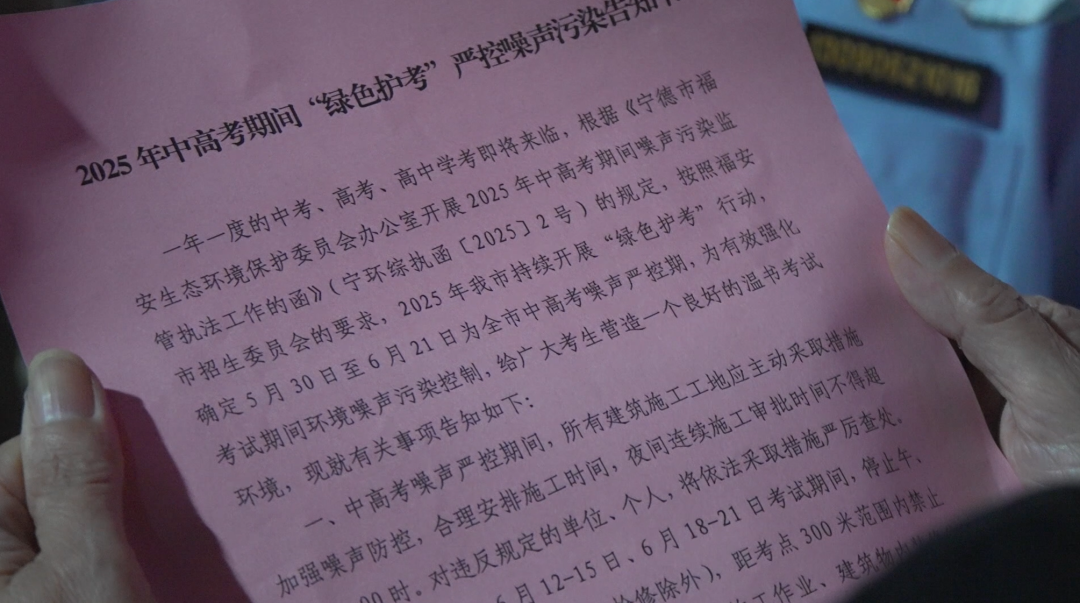 2025年中高考期间“绿色护考”严控噪声污染告知
一年一度的中考、高考、高中学考即将来临,根据《宁德市福
安生态环境保护委员会办公室开展2025年中高考期间噪声污染监
管执法工作的函》(宁环综执函〔2025〕2号)的规定,按照福安
市招生委员会的要求,2025年我市持续开展“绿色护考”行动,
确定5月30日至6月21日为全市中高考噪声严控期,为有效强化
考试期间环境噪声污染控制,给广大考生营造一个良好的温书考试
环境,现就有关事项告知如下:
一、中高考噪声严控期间,所有建筑施工工地应主动采取措施
加强噪声防控,合理安排施工时间,夜间连续施工审批时间不得超
00时。对违反规定的单位、个人,将依法采取措施严厉查处。
月12-15日、6月18-21日考试期间,停止午、
修除外),距考点300米范围内禁止
工作业、建筑物